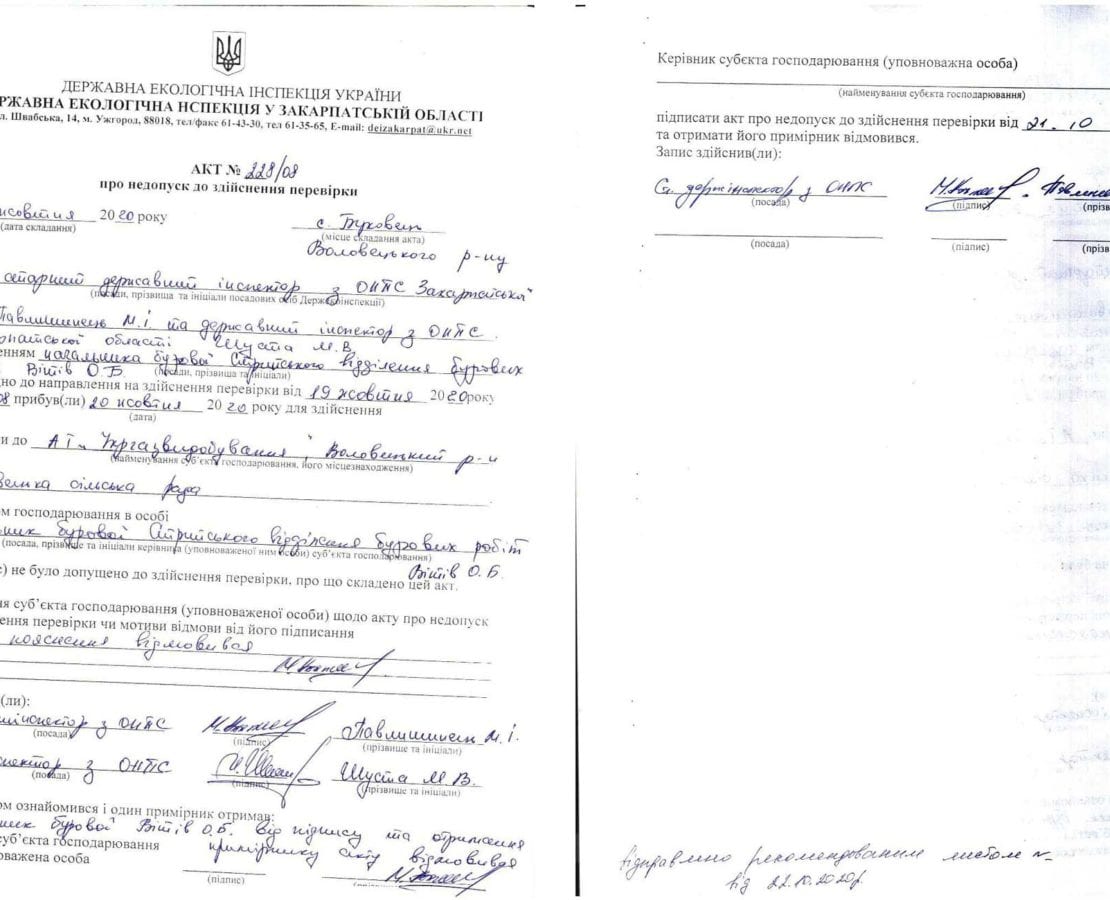 ДЕРЖАВНА ЕКОЛОГІЧНА ІНСПЕКЦІЯ УКРАЇНИ
РЖАВНА ЕКОЛОГІЧНА НСПЕКЦІЯ У ЗАКАРПАТСЬКІЙ ОБЛАСТІ
л. Швабська, 14, м. Ужгород, 88018, тел/факс 61-43-30, тел 61-35-65, E-mail: deizakarpat@ukr.net
АКТ № 228/08
про недопуск до здійснення перевірки
жовтня 2020 року
с. Буковець
(дата складання)
(місце складання акта)
Воловецького р-ну
старший державний інспектор з ОНПС Закарпатської
(посади, прізвища та ініціали посадових осіб Держекоінспекції)
Павлишинець М.І. та державний інспектор з ОНПС
рпатської області Шуста М.В.
енням начальника бурової Стрийського відділення бурових
Вітів О.Б. (посади, прізвища та ініціали)
но до направлення на здійснення перевірки від 19 жовтня 2020року
08 прибув(ли) 20 жовтня 2020 року для здійснення
(дата)
и до АТ „Укргазвидобування", Воловецький р-н
(найменування суб’єкта господарювання, його місцезнаходження)
сільська рада
ом господарювання в особі
ник бурової Стрийського відділення бурових робіт
(посада, прізвище та ініціали керівника (уповноваженої ним особи) суб’єкта господарювання)
Вітів О.Б.
) не було допущено до здійснення перевірки, про що складено цей акт.
ня суб’єкта господарювання (уповноваженої особи) щодо акту про недопуск
ення перевірки чи мотиви відмови від його підписання
пояснення відмовився
(ли):
інспектор з ОНПС Павлишинець М.І.
(посада) (підпис) (прізвище та ініціали)
спектор з ОНПС Шуста М.В.
(посада) (підпис) (прізвище та ініціали)
ом ознайомився і один примірник отримав:
ник бурової Вітів О.Б. від підпису та отримання
суб’єкта господарювання примірнику акту відмовився
оважена особа
(підпис)
Керівник субєкта господарювання (уповноважна особа)
(найменування субєкта господарювання)
підписати акт про недопуск до здійснення перевірки від 21.10
та отримати його примірник відмовився.
Запис здійснив(ли):
Ст. держінспектор з ОНПС Павлине
(посада) (підпис) (прізв
(посада) (підпис) (прізв
Відправлено рекомендованим листом №
від 22.10.2020р.